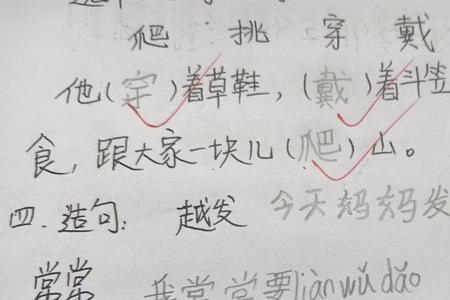 爬 挑 穿 戴
他(穿)着草鞋，(戴)着斗笠
食，跟大家一块儿(爬)山。
四.造句： 越发 今天妈妈发
常常 我常常要liàn wǔ dǎo